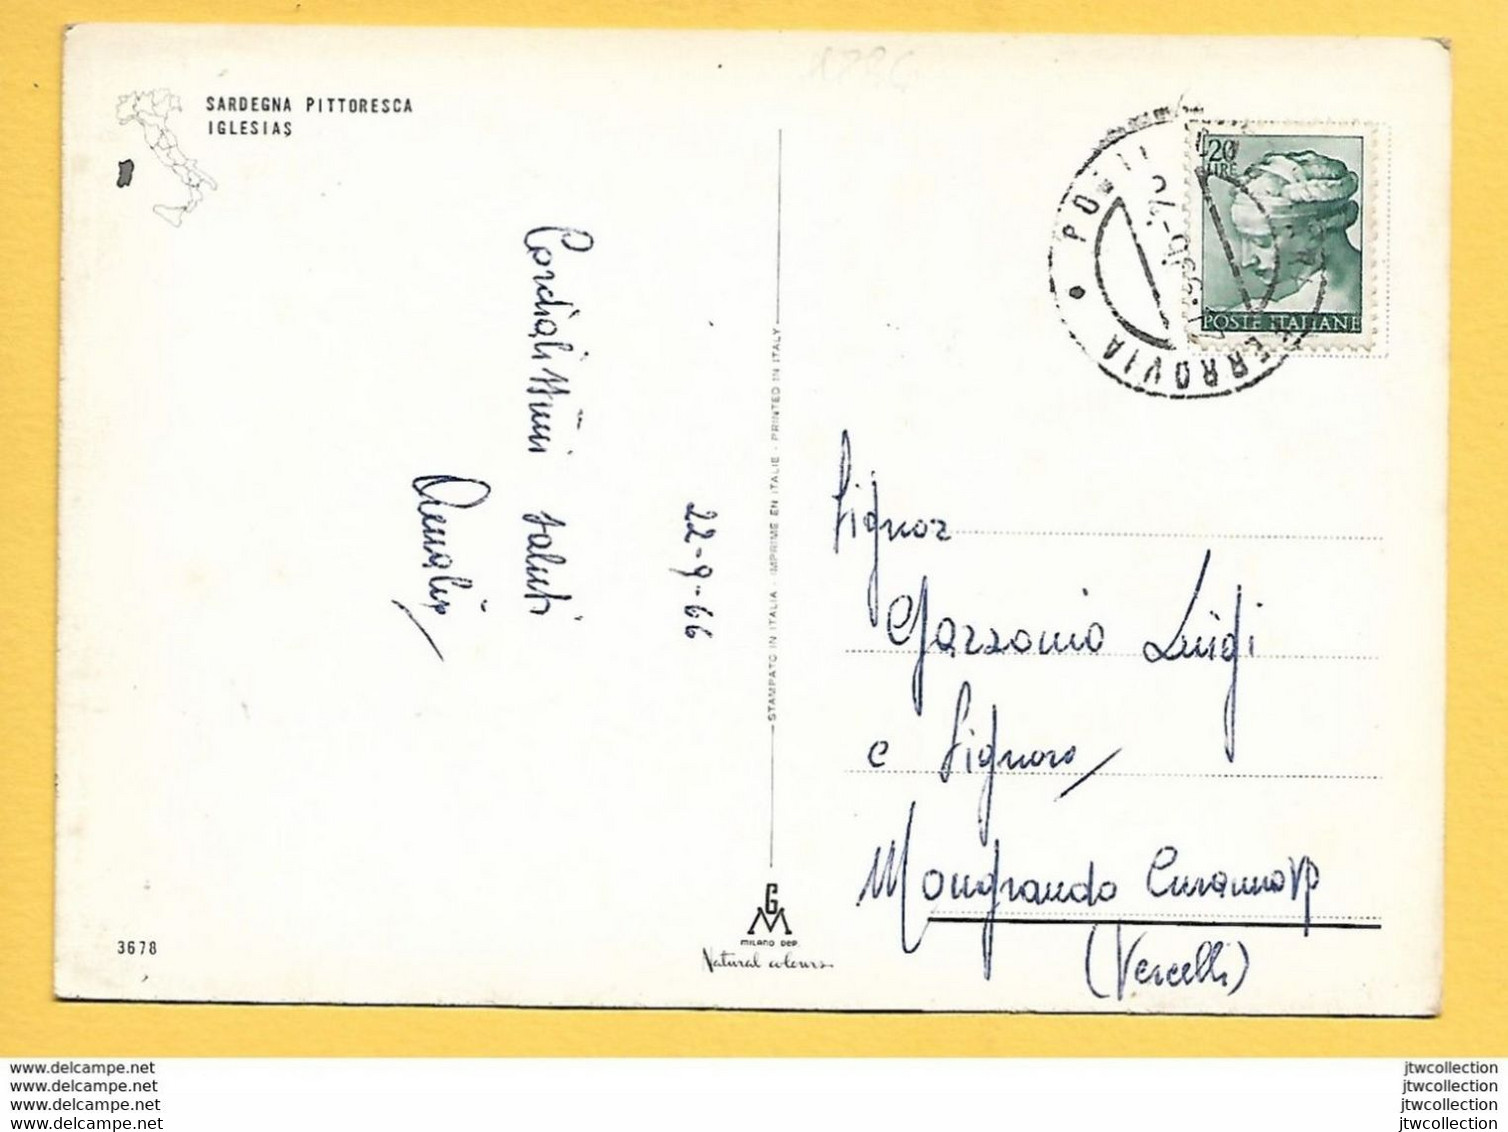 SARDEGNA PITTORESCA
IGLESIAS
Cordialissimi saluti
22-9-66
STAMPATO IN ITALIA - IMPRIME EN ITALIE - PRINTED IN ITALY
20
LIRE
POSTE ITALIANE
FERROVIA
Signor
Garzonio Luigi
e Signora
Mongrando
(Vercelli)
3678
GM
MILANO DEP.
Natural colours
www.delcampe.net
www.delcampe.net
www.delcampe.net
www.delcampe.net
jtwcollection
jtwcollection
jtwcollection
jtwcollection